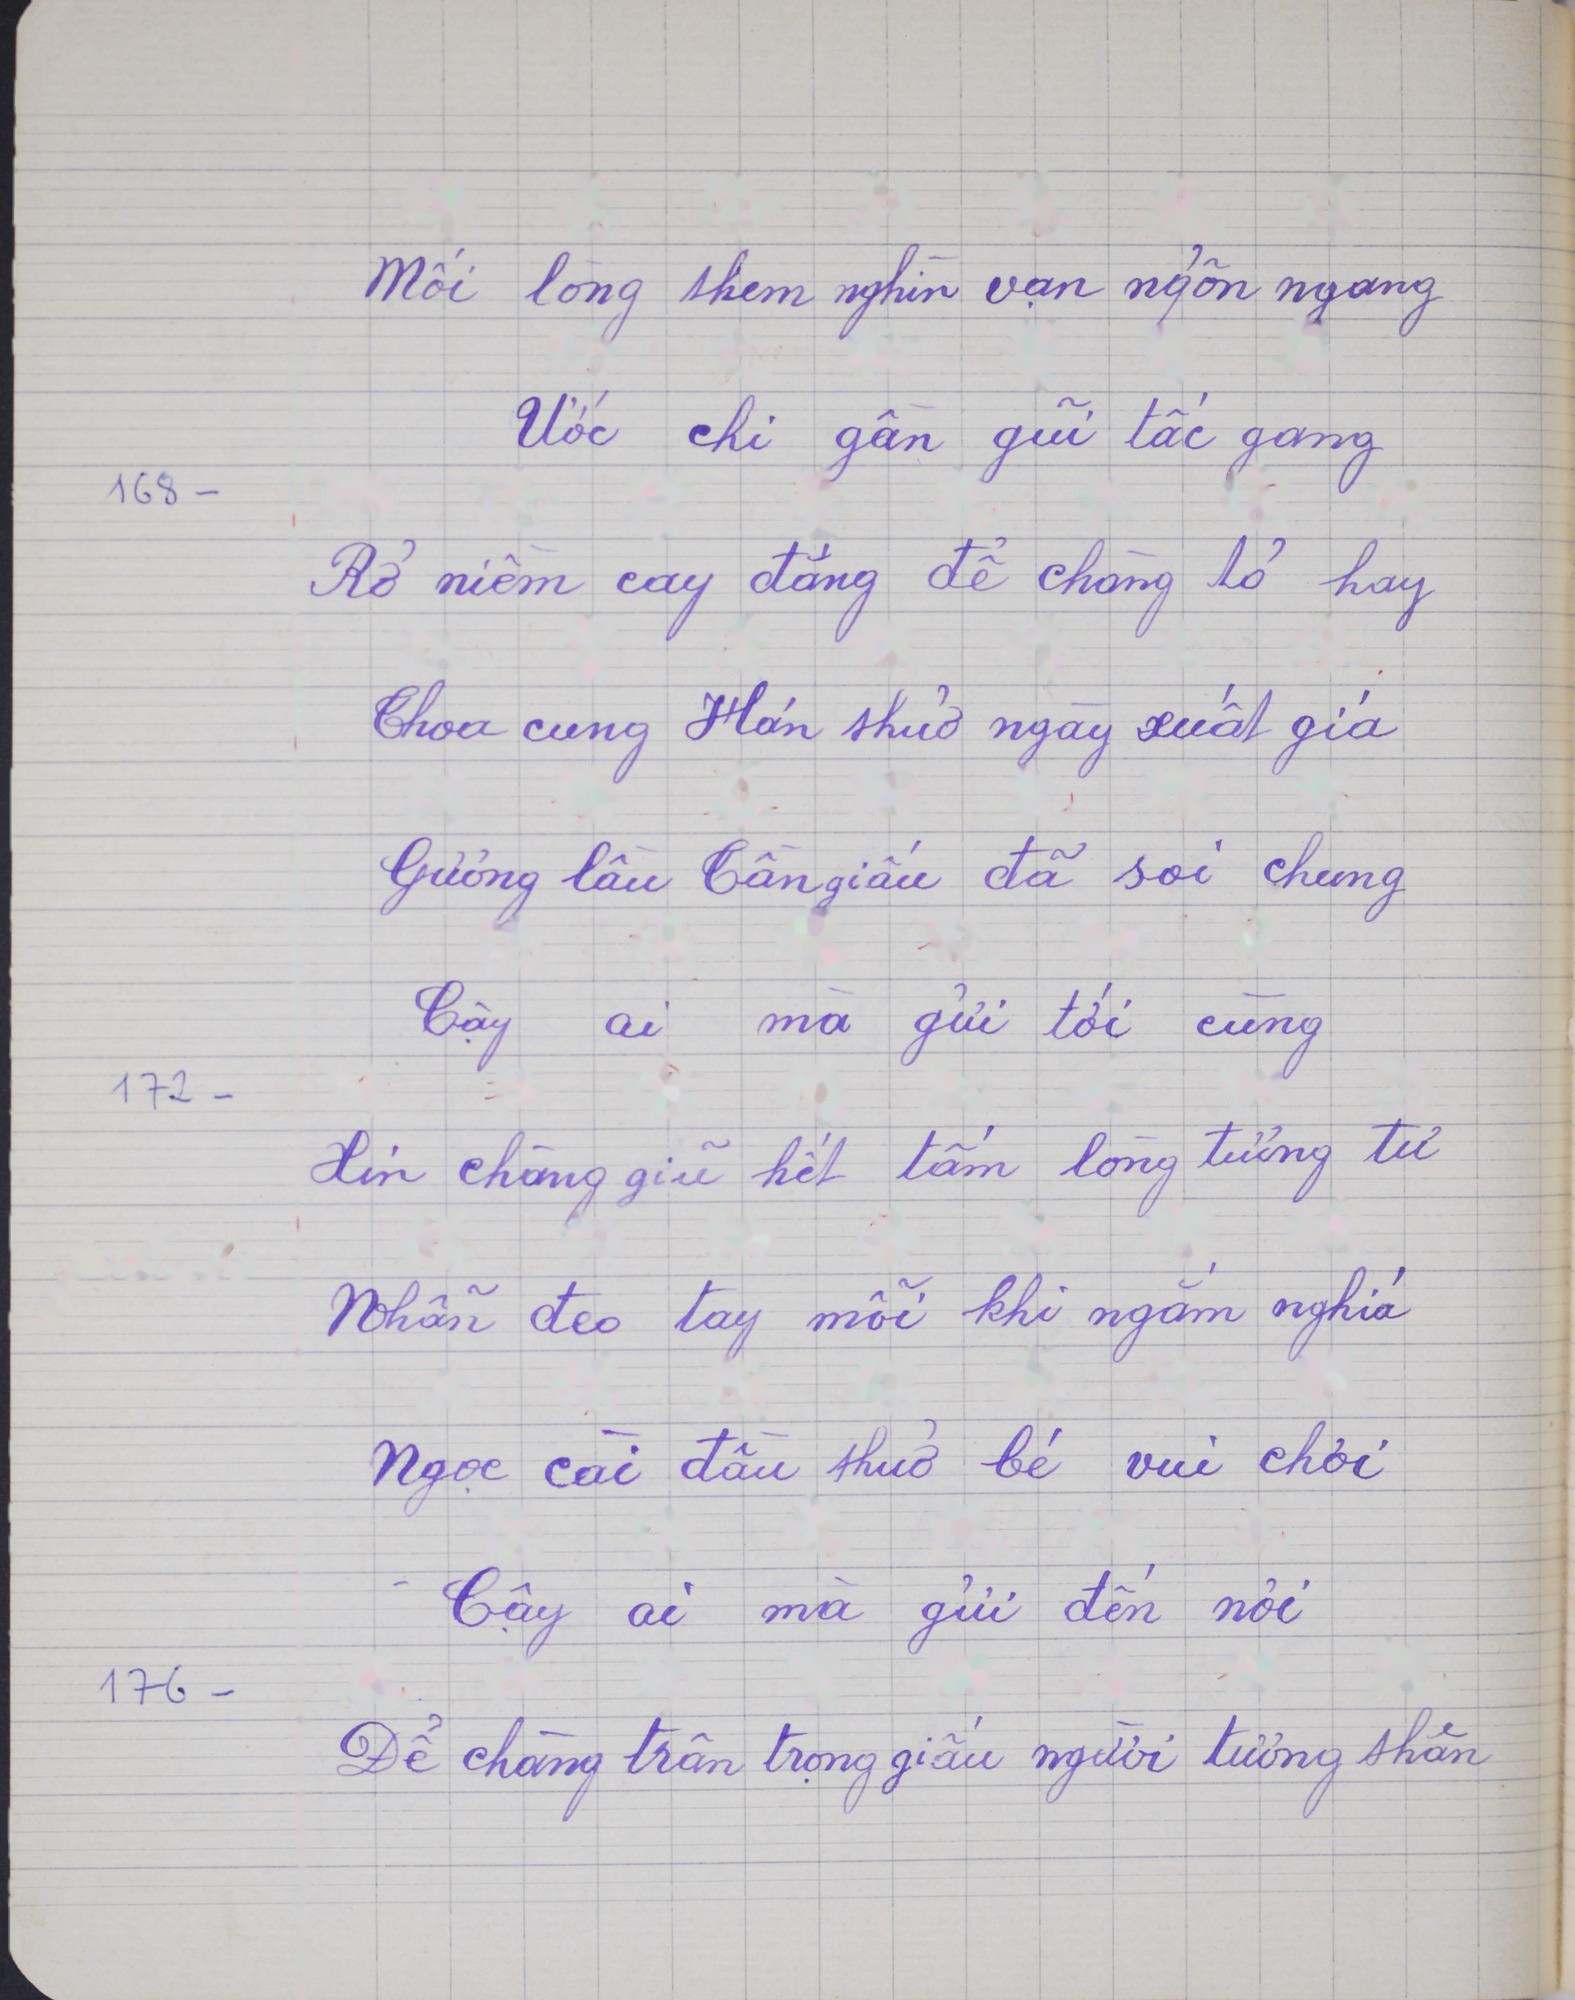 Mối lòng thêm nghìn vạn ngổn ngang
Ước chi gần gũi tấc gang
168 -
Rở niềm cay đắng để chàng tỏ hay
Thoa cung Hán thuở ngày xuất giá
Gương lầu Tần giấu đã soi chung
Cậy ai mà gửi tới cùng
172 -
Xin chàng giữ hết tấm lòng tương tư
Nhẫn đeo tay mỗi khi ngắm nghía
Ngọc cài đầu thuở bé vui chơi
- Cậy ai mà gửi đến nơi
176 -
Để chàng trân trọng giấu người tương thân